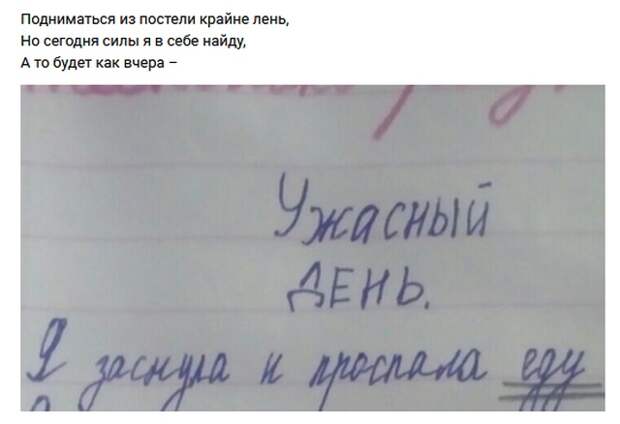 Подниматься из постели крайне лень,
Но сегодня силы я в себе найду,
А то будет как вчера –
Ужасный
ДЕНЬ.
Я заснула и проспала еду